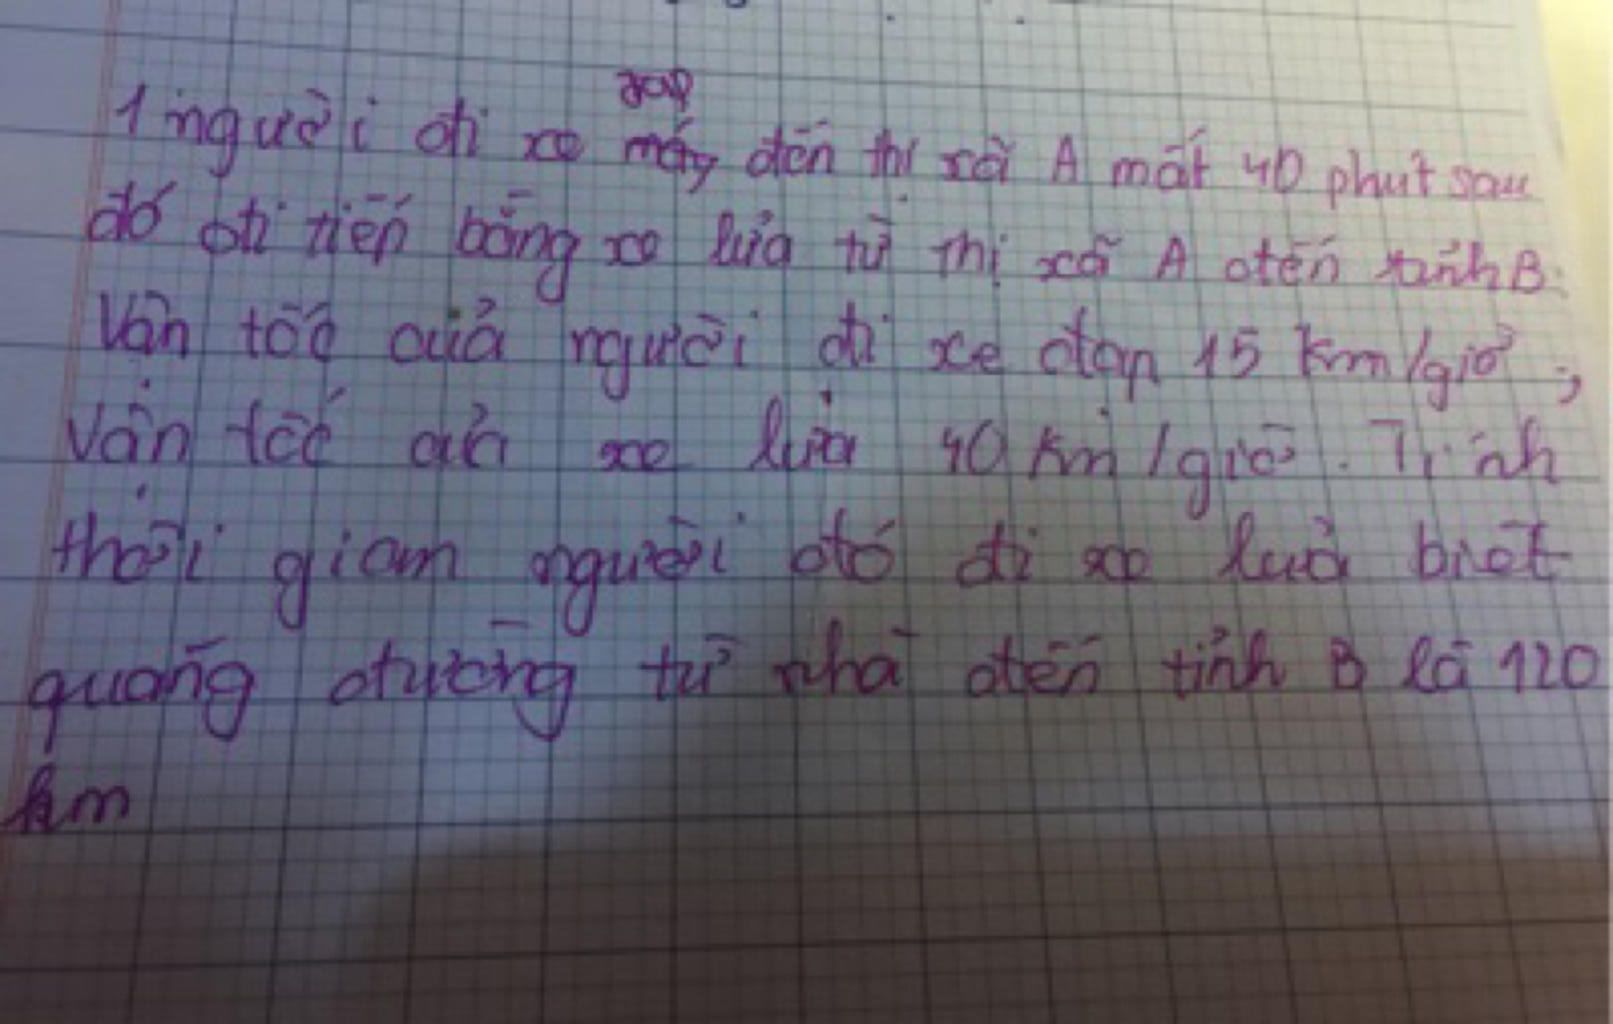 đạp
1 người đi xe máy đến thị xã A mất 40 phút sau
đó đi tiếp bằng xe lửa từ thị xã A đến tỉnh B.
Vận tốc của người đi xe đạp 15 km/giờ,
vận tốc của xe lửa 40 km/giờ. Tính
thời gian người đó đi xe lửa biết
quãng đường từ nhà đến tỉnh B là 120
km